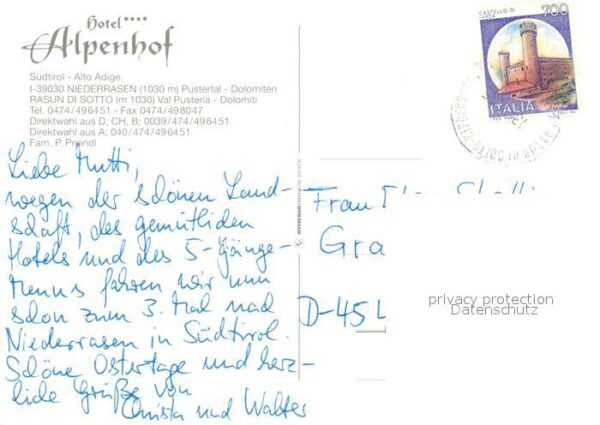 Hotel ****
Alpenhof
Südtirol - Alto Adige
I-39030 NIEDERRASEN (1030 m) Pustertal - Dolomiten
RASUN DI SOTTO (m 1030) Val Pusteria - Dolomiti
Tel. 0474/496451 - Fax 0474/498047
Direktwahl aus D, CH, B: 0039/474/496451
Direktwahl aus A: 040/474/496451
Fam. P. Preindl
CASTELLO DI
IVREA
700
ITALIA
Liebe Mutti,
wegen der schönen Land-
schaft, des gemütlichen
Hotels und des 5-gänge-
Menus fahren wir nun
schon zum 3. Mal nach
Niederrasen in Südtirol.
Schöne Ostertage und herz-
liche Grüße von
Christa und Walter
Frau
Gra
D-45
privacy protection
Datenschutz